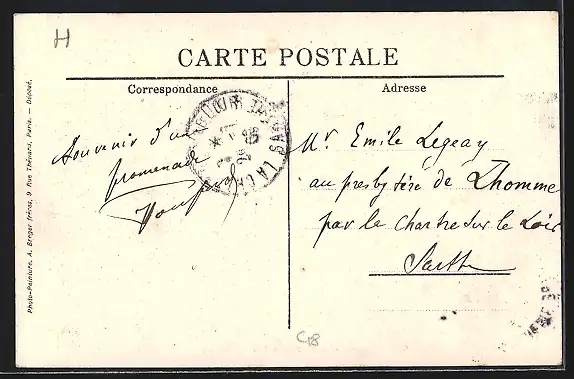 H
CARTE POSTALE
Correspondance
Adresse
Souvenir d'une
promenade
Mr Emile Legeay
au presbytère de Lhomme
par le Chartre sur le Loir
Sarthe
Photo-Peinture. A. Berger frères, 9 Rue Thénard, Paris. — Déposé.
C18